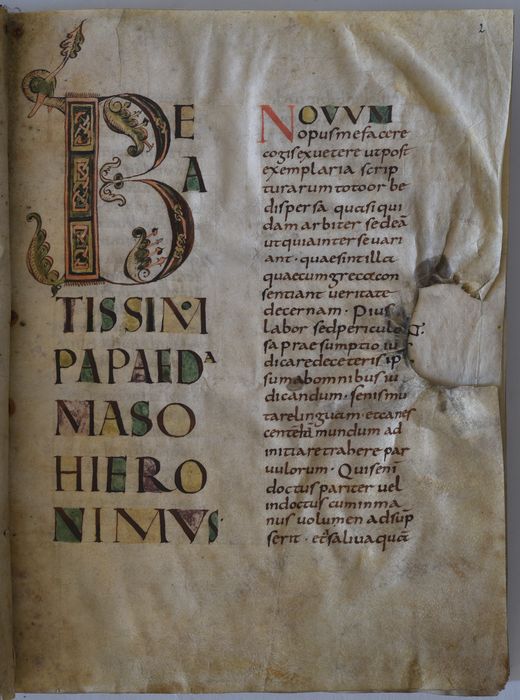 2
BE
A
TISSIM
PAPAE Da
MASO
HIERO
NIMVS
NOVVM
opus me facere
cogis ex vetere ut post
exemplaria scrip
turarum toto orbe
dispersa quasi qui
dam arbiter sedeā
ut quia inter se vari
ant · quae sint illa
quae cum greca con
sentiant veritate
decernam · Pius
labor sed periculo
sa praesumptio iu
dicare de ceteris ip
sum ab omnibus iu
dicandum · senis mu
tare linguam · et canes
centē mundum ad
initia retrahere par
vulorum · Quis enī
doctus pariter vel
indoctus cum in ma
nus volumen adsūp
serit · et saliva quā